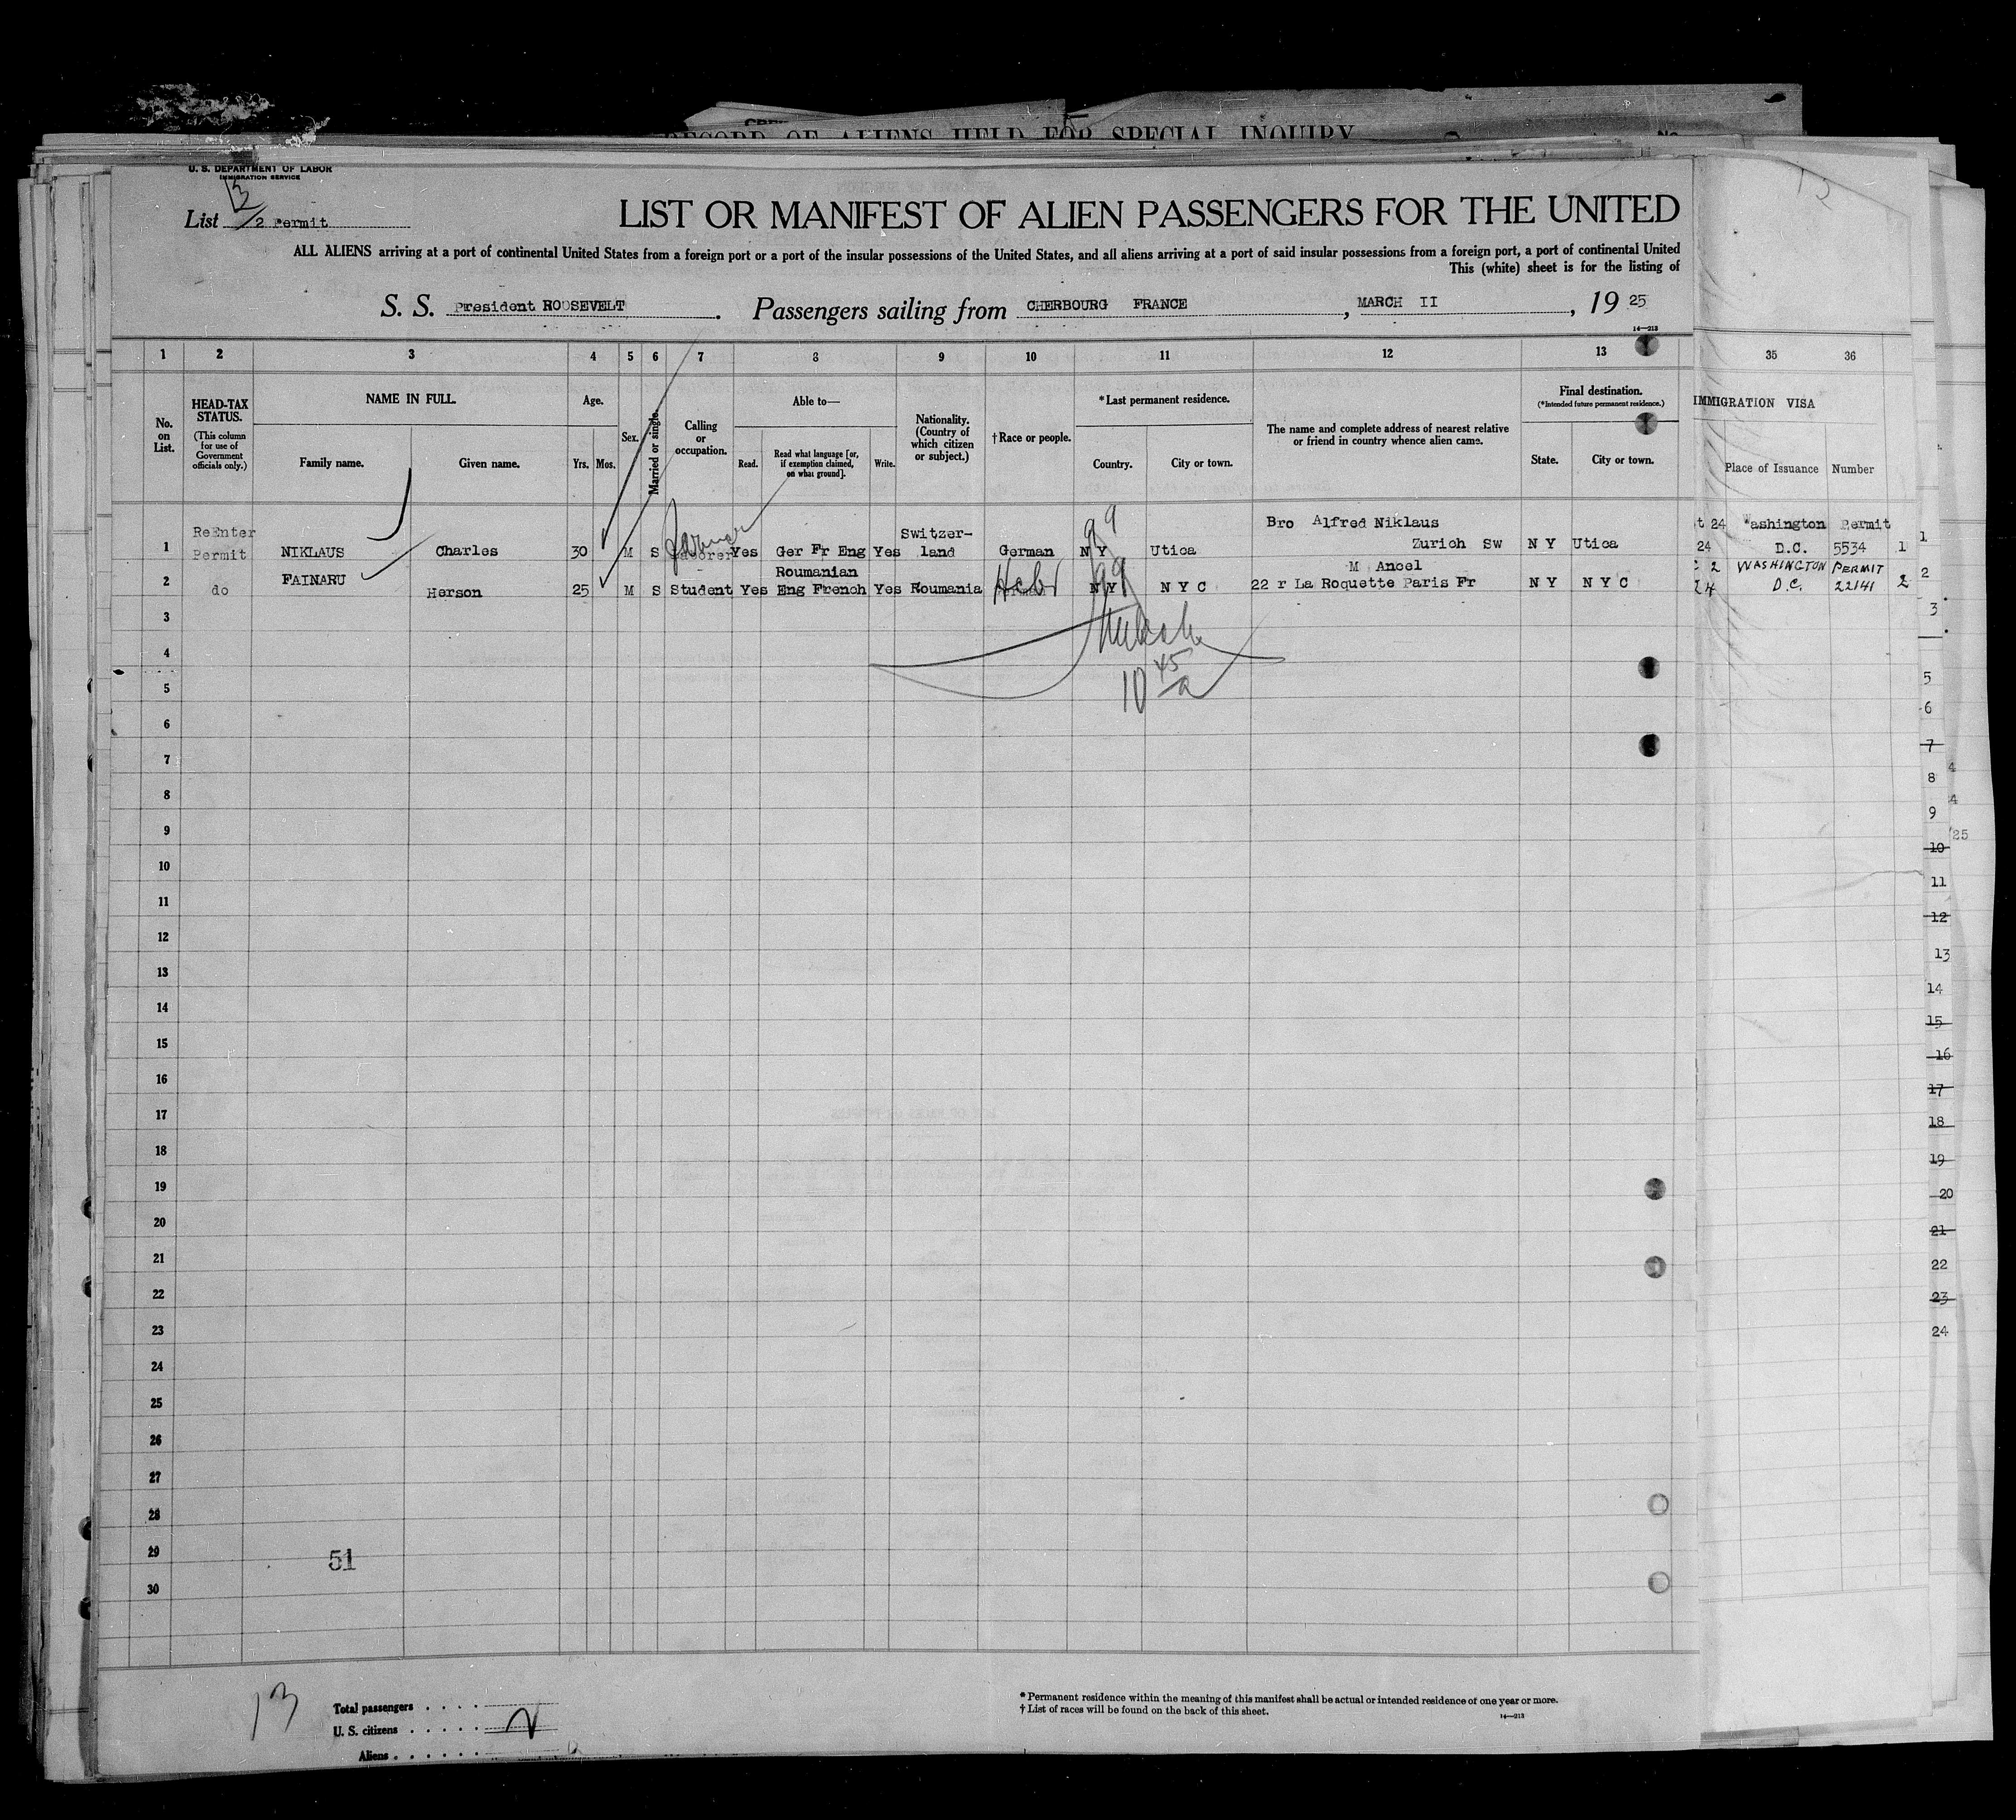 RECORD OF ALIENS HELD FOR SPECIAL INQUIRY
U. S. DEPARTMENT OF LABOR
IMMIGRATION SERVICE
13
List 2 Permit
LIST OR MANIFEST OF ALIEN PASSENGERS FOR THE UNITED
ALL ALIENS arriving at a port of continental United States from a foreign port or a port of the insular possessions of the United States, and all aliens arriving at a port of said insular possessions from a foreign port, a port of continental United
This (white) sheet is for the listing of
S. S. President ROOSEVELT. Passengers sailing from CHERBOURG FRANCE, MARCH II, 19 25
14—213
1 2 3 4 5 6 7 8 9 10 11 12 13 35 36
No. on List.
HEAD-TAX STATUS.
(This column for use of Government officials only.)
NAME IN FULL.
Family name.
Given name.
Age.
Yrs. Mos.
Sex.
Married or single.
Calling or occupation.
Able to—
Read.
Read what language [or, if exemption claimed, on what ground].
Write.
Nationality. (Country of which citizen or subject.)
† Race or people.
* Last permanent residence.
Country.
City or town.
The name and complete address of nearest relative or friend in country whence alien came.
Final destination.
(*Intended future permanent residence.)
State.
City or town.
IMMIGRATION VISA
Place of Issuance Number
ReEnter Switzer- Bro Alfred Niklaus t 24 Washington Permit
1 Permit NIKLAUS Charles 30 M S Yes Ger Fr Eng Yes land German N Y Utica Zurich Sw N Y Utica 24 D.C. 5534 1
FAINARU Roumanian M Ancel 2 WASHINGTON PERMIT
2 do Herson 25 M S Student Yes Eng French Yes Roumania Hebr N Y N Y C 22 r La Roquette Paris Fr N Y N Y C 24 D.C. 22141 2
3
4
10 45 a
5
6
7
8
9
10
11
12
13
14
15
16
17
18
19
20
21
22
23
24
25
26
27
28
29
51
30
1
2
3
5
6
7
8
9
10
11
12
13
14
15
16
17
18
19
20
21
22
23
24
13
Total passengers
U. S. citizens
Aliens
* Permanent residence within the meaning of this manifest shall be actual or intended residence of one year or more.
† List of races will be found on the back of this sheet.
14—213